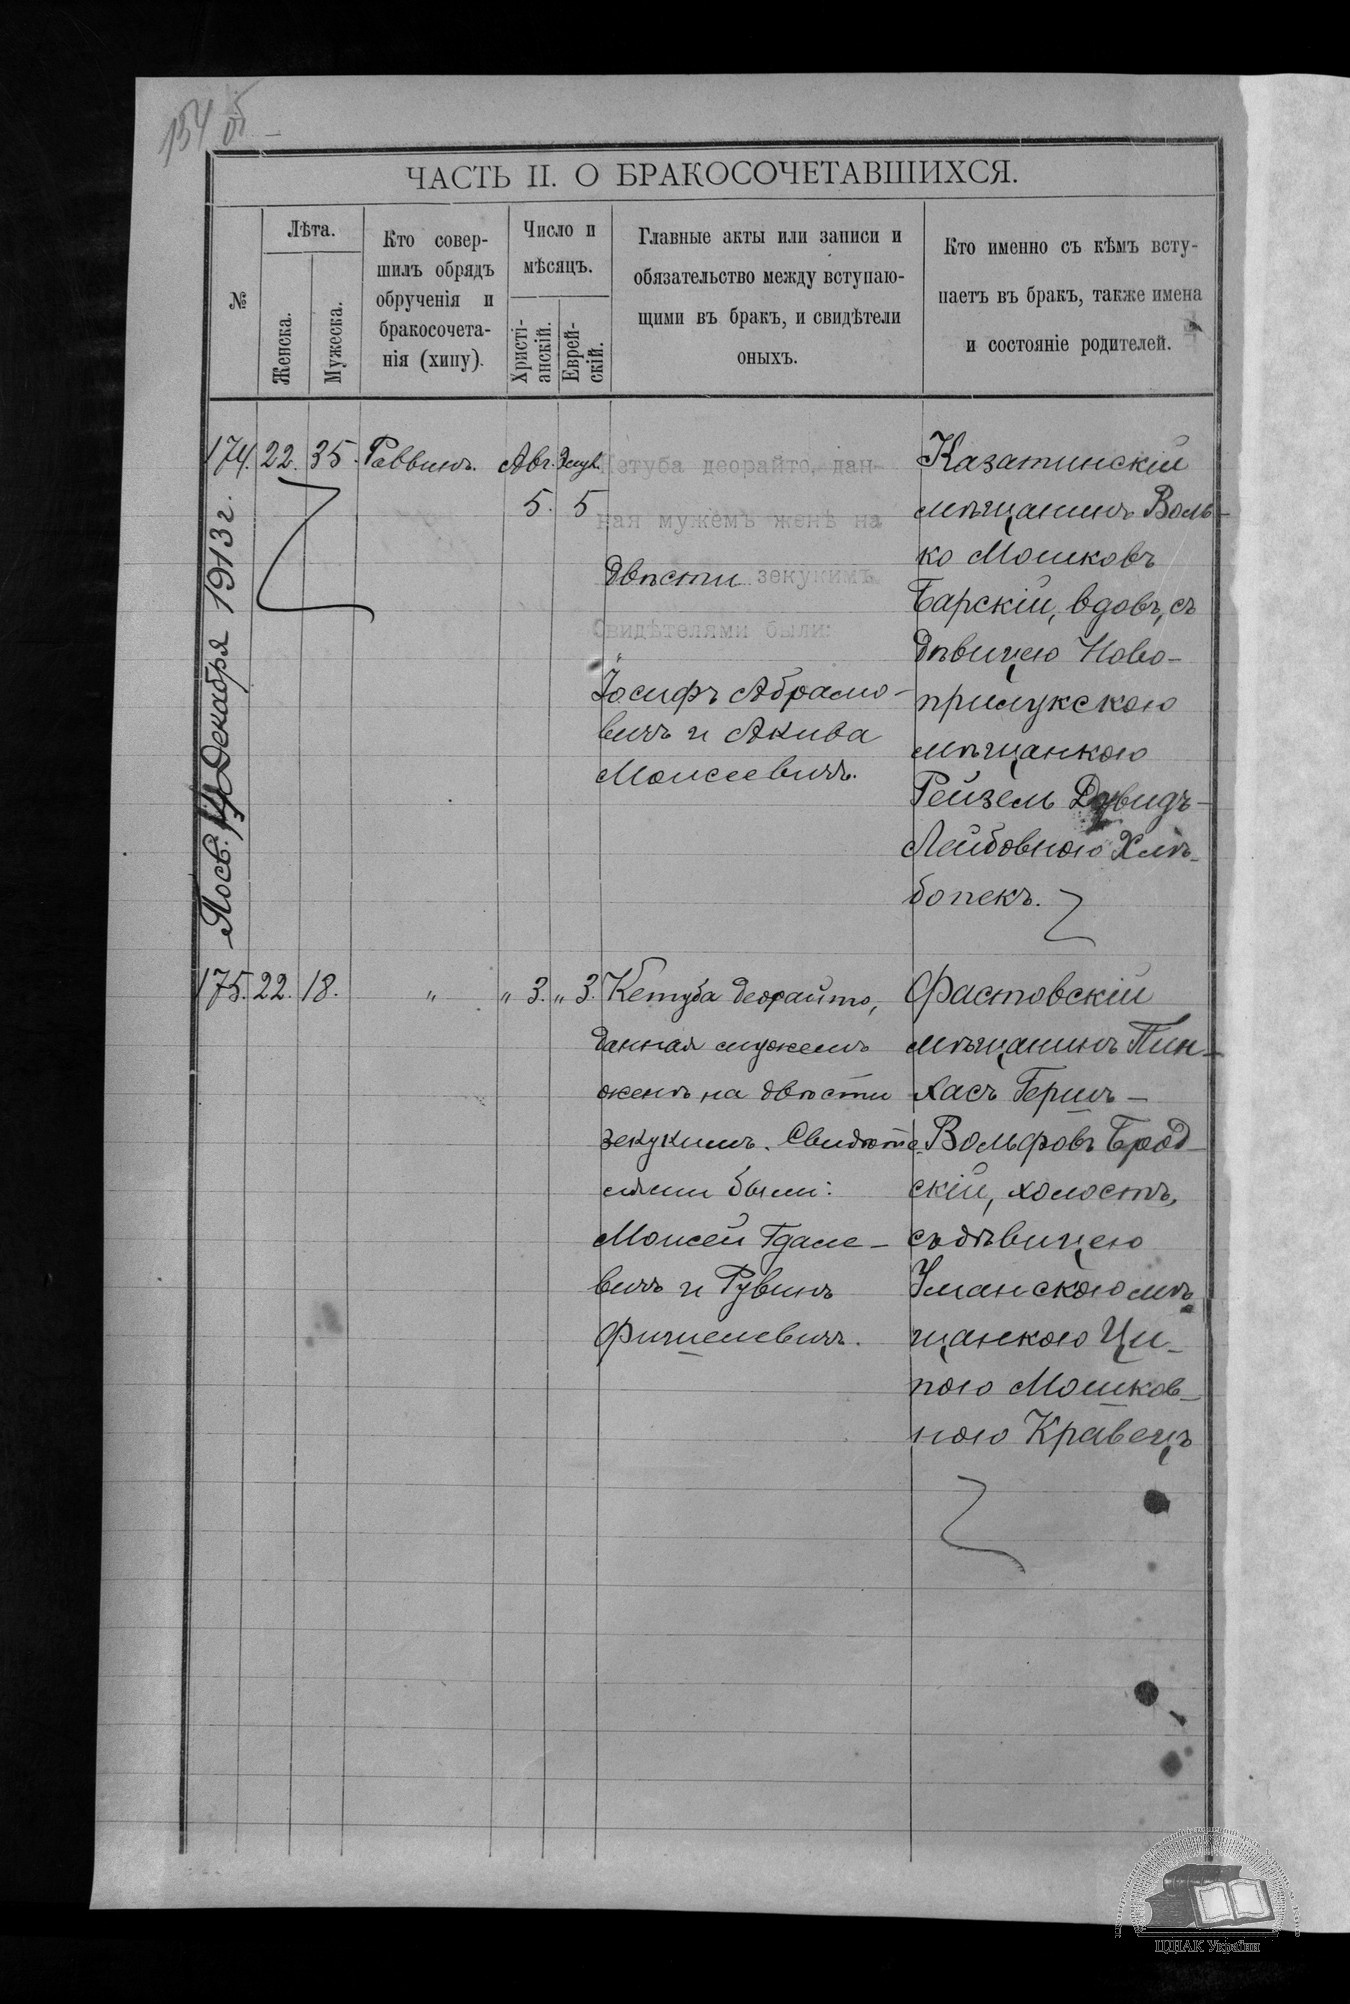 154 об
ЧАСТЬ II. О БРАКОСОЧЕТАВШИХСЯ.
№
Лѣта.
Женска.
Мужеска.
Кто совер-
шилъ обрядъ
обрученія и
бракосочета-
нія (хипу).
Число и
мѣсяцъ.
Христі-
анскій.
Еврей-
скій.
Главные акты или записи и
обязательство между вступаю-
щими въ бракъ, и свидѣтели
оныхъ.
Кто именно съ кѣмъ всту-
паетъ въ бракъ, также имена
и состояніе родителей.
174. 22. 35. Раввинъ. Авг. Элул.
5. 5
Кетуба деорайто, дан-
ная мужемъ женѣ на
двѣсти зекукимъ
Свидѣтелями были:
Іосифъ Абрамо-
вичъ и Акива
Моисеевичъ.
Казатинскій
мѣщанинъ Воль-
ко Мошковъ
Барскій, вдовъ, съ
дѣвицею Ново-
прилукскою
мѣщанкою
Рейзель Дувидъ-
Лейбовною Хлѣ-
бопекъ.
Декабря 1913 г.
175. 22. 18. " " 3. " 3.
Кетуба деорайто,
данная мужемъ
женѣ на двѣсти
зекукимъ. Свидѣте-
лями были:
Моисей Гдале-
вичъ и Рувинъ
Фишелевичъ.
Фастовскій
мѣщанинъ Пин-
хасъ Гершъ-
Вольфовъ Брод-
скій, холостъ,
съ дѣвицею
Уманскою мѣ-
щанкою Ци-
пою Мошков-
ною Кравецъ
ЦДІАК України